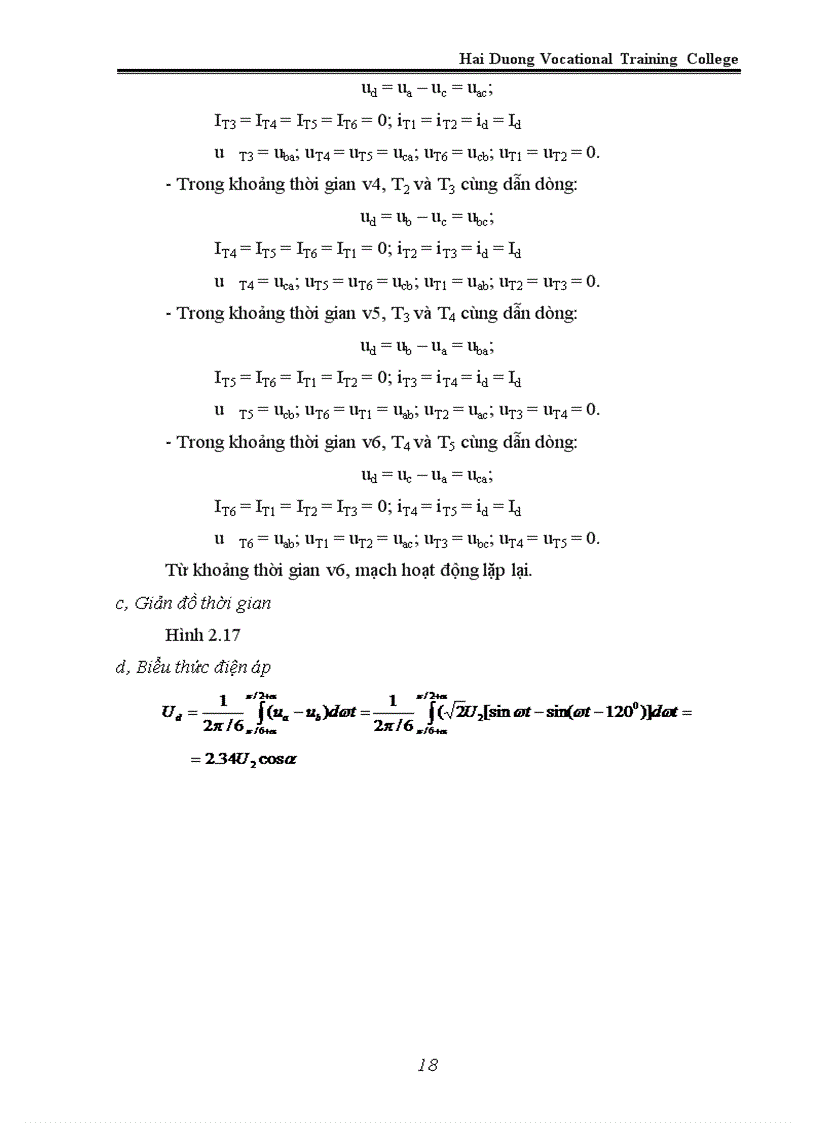 Hai Duong Vocational Training College
u_d = u_a – u_c = u_ac;
I_T3 = I_T4 = I_T5 = I_T6 = 0; i_T1 = i_T2 = i_d = I_d
u T3 = u_ba; u_T4 = u_T5 = u_ca; u_T6 = u_cb; u_T1 = u_T2 = 0.
- Trong khoảng thời gian v4, T2 và T3 cùng dẫn dòng:
u_d = u_b – u_c = u_bc;
I_T4 = I_T5 = I_T6 = I_T1 = 0; i_T2 = i_T3 = i_d = I_d
u T4 = u_ca; u_T5 = u_T6 = u_cb; u_T1 = u_ab; u_T2 = u_T3 = 0.
- Trong khoảng thời gian v5, T3 và T4 cùng dẫn dòng:
u_d = u_b – u_a = u_ba;
I_T5 = I_T6 = I_T1 = I_T2 = 0; i_T3 = i_T4 = i_d = I_d
u T5 = u_cb; u_T6 = u_T1 = u_ab; u_T2 = u_ac; u_T3 = u_T4 = 0.
- Trong khoảng thời gian v6, T4 và T5 cùng dẫn dòng:
u_d = u_c – u_a = u_ca;
I_T6 = I_T1 = I_T2 = I_T3 = 0; i_T4 = i_T5 = i_d = I_d
u T6 = u_ab; u_T1 = u_T2 = u_ac; u_T3 = u_bc; u_T4 = u_T5 = 0.
Từ khoảng thời gian v6, mạch hoạt động lặp lại.
c, Giản đồ thời gian
Hình 2.17
d, Biểu thức điện áp
U_d = 1/(2π/6) ∫_{π/6+α}^{π/2+α} (u_a − u_b)dωt = 1/(2π/6) ∫_{π/6+α}^{π/2+α} (√2U_2[sin ωt − sin(ωt − 120^0)]dωt =
= 2.34U_2 cosα
18